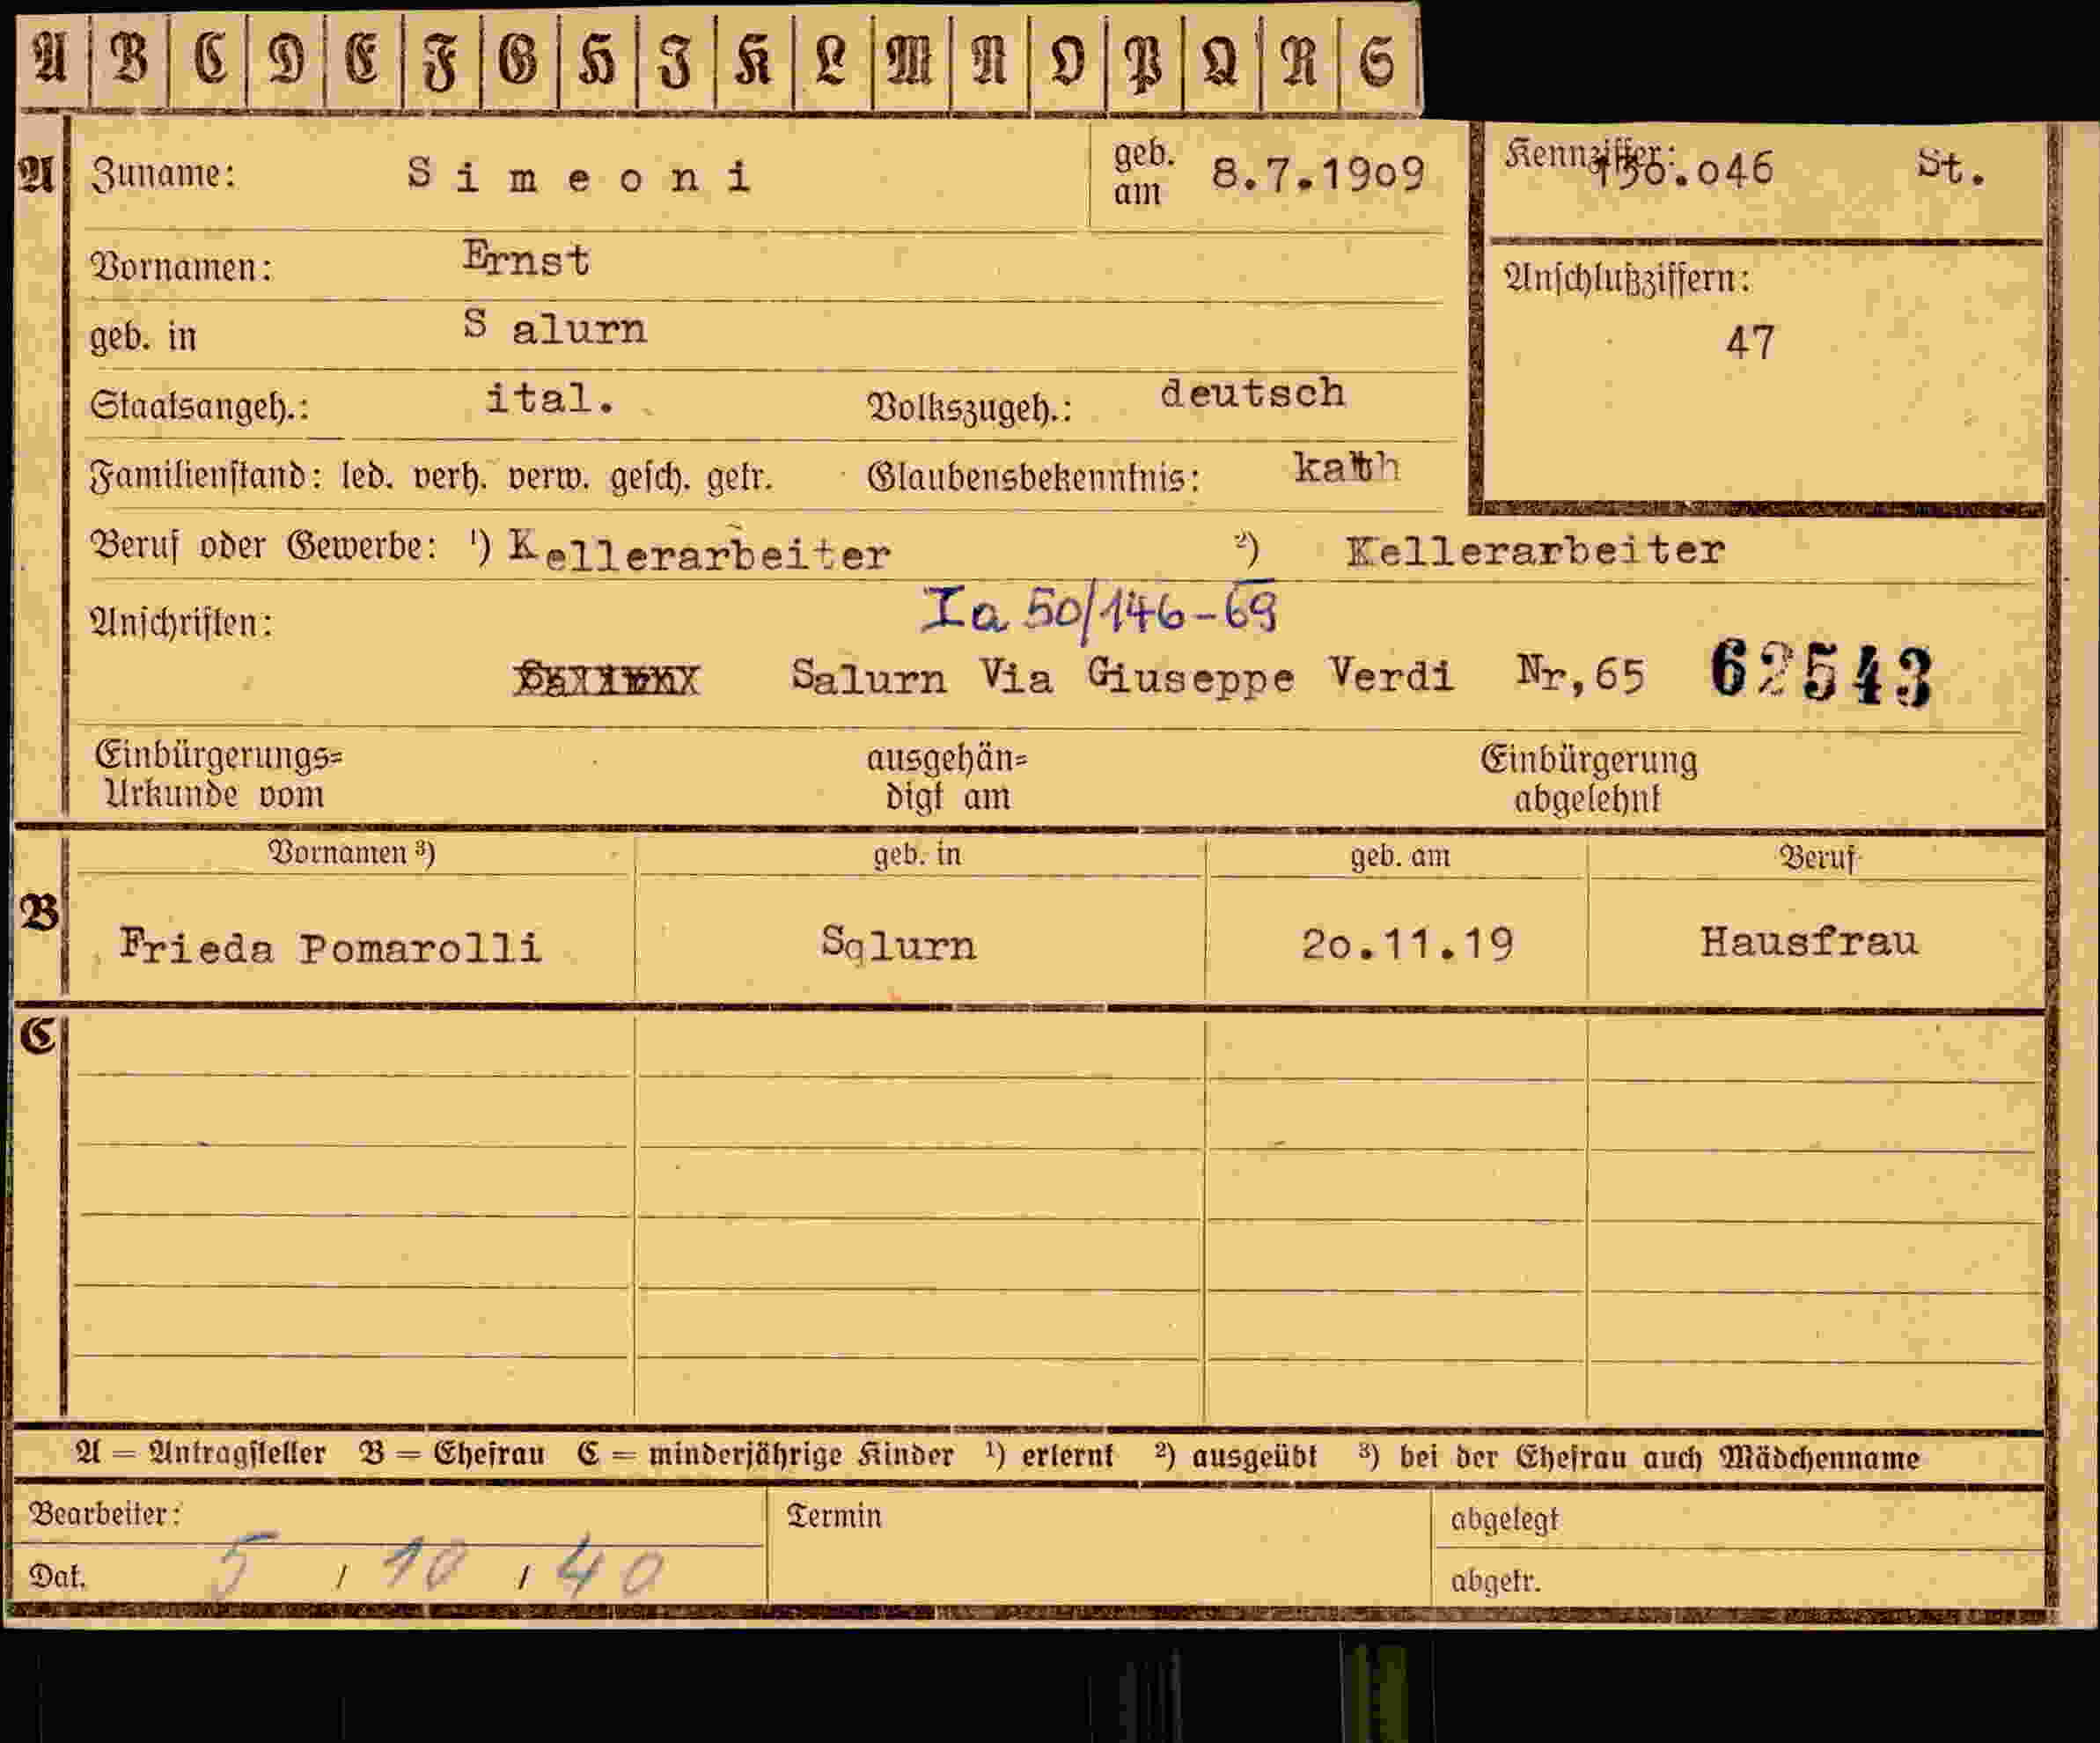 A B C D E F G H I K L M N O P Q R S
A Zuname: Simeoni geb. am 8.7.1909
Kennziffer: .046 St.
Vornamen: Ernst
Anschlußziffern:
geb. in S alurn
47
Staatsangeh.: ital. Volkszugeh.: deutsch
Familienstand: led. verh. verw. gesch. getr. Glaubensbekenntnis: kath
Beruf oder Gewerbe: ¹) Kellerarbeiter ²) Kellerarbeiter
Ia 50/146-69
Anschriften:
Salurn Via Giuseppe Verdi Nr,65 62543
Einbürgerungs= ausgehän= Einbürgerung
Urkunde vom digt am abgelehnt
Vornamen ³) geb. in geb. am Beruf
B Frieda Pomarolli Salurn 20.11.19 Hausfrau
C
A = Antragsteller B = Ehefrau C = minderjährige Kinder ¹) erlernt ²) ausgeübt ³) bei der Ehefrau auch Mädchenname
Bearbeiter: Termin abgelegt
Dat. 5 / 10 / 40 abgetr.